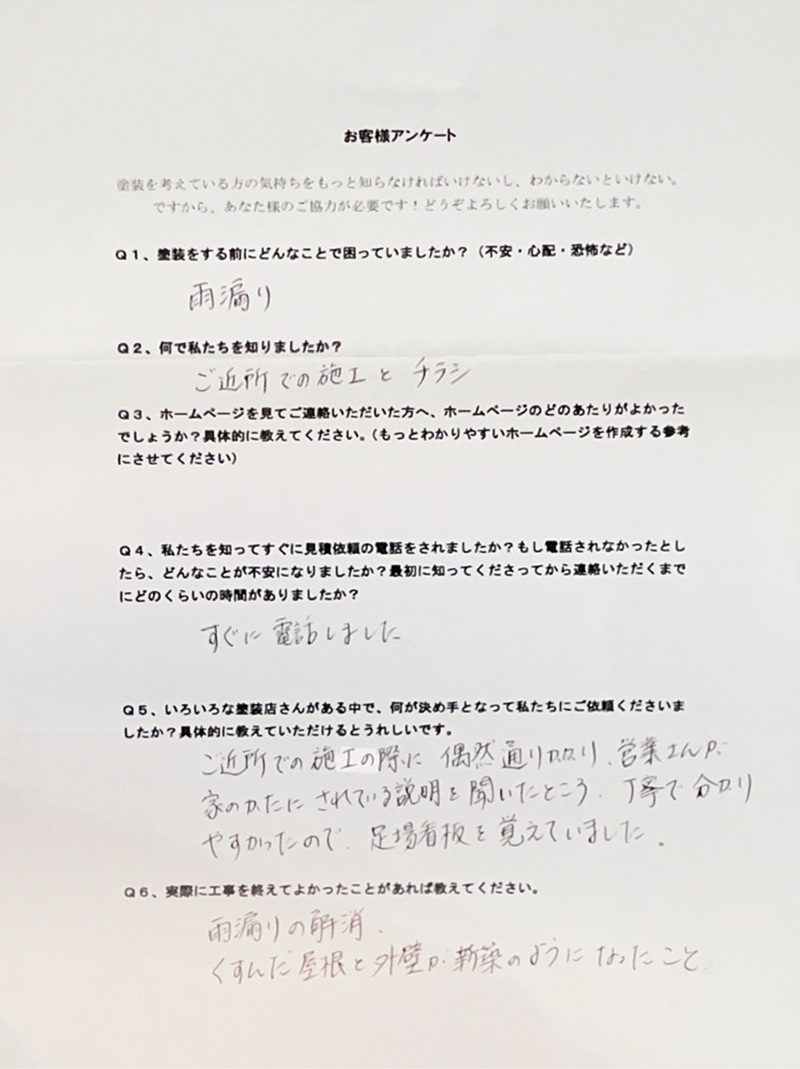 お客様アンケート
塗装を考えている方の気持ちをもっと知らなければいけないし、わからないといけない。
ですから、あなた様のご協力が必要です！どうぞよろしくお願いいたします。
Ｑ１、塗装をする前にどんなことで困っていましたか？（不安・心配・恐怖など）
雨漏り
Ｑ２、何で私たちを知りましたか？
ご近所での施工と チラシ
Ｑ３、ホームページを見てご連絡いただいた方へ、ホームページのどのあたりがよかった
でしょうか？具体的に教えてください。（もっとわかりやすいホームページを作成する参考
にさせてください）
Ｑ４、私たちを知ってすぐに見積依頼の電話をされましたか？もし電話されなかったとし
たら、どんなことが不安になりましたか？最初に知ってくださってから連絡いただくまで
にどのくらいの時間がありましたか？
すぐに電話しました
Ｑ５、いろいろな塗装店さんがある中で、何が決め手となって私たちにご依頼くださいま
したか？具体的に教えていただけるとうれしいです。
ご近所での施工の際に 偶然通りかかり、営業さんが
家のかたにされている説明を聞いたところ、丁寧で分かり
やすかったので、足場看板を覚えていました。
Ｑ６、実際に工事を終えてよかったことがあれば教えてください。
雨漏りの解消、
くすんだ屋根と外壁が新築のようになったこと